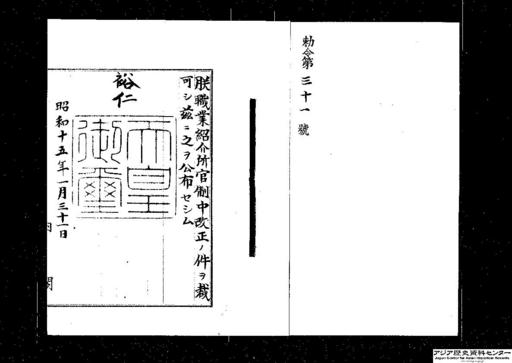 勅令第三十一號
朕職業紹介所官制中改正ノ件ヲ裁
可シ茲ニ之ヲ公布セシム
裕仁
天皇
御璽
昭和十五年一月三十一日
内閣
アジア歴史資料センター
Japan Center for Asian Historical Records